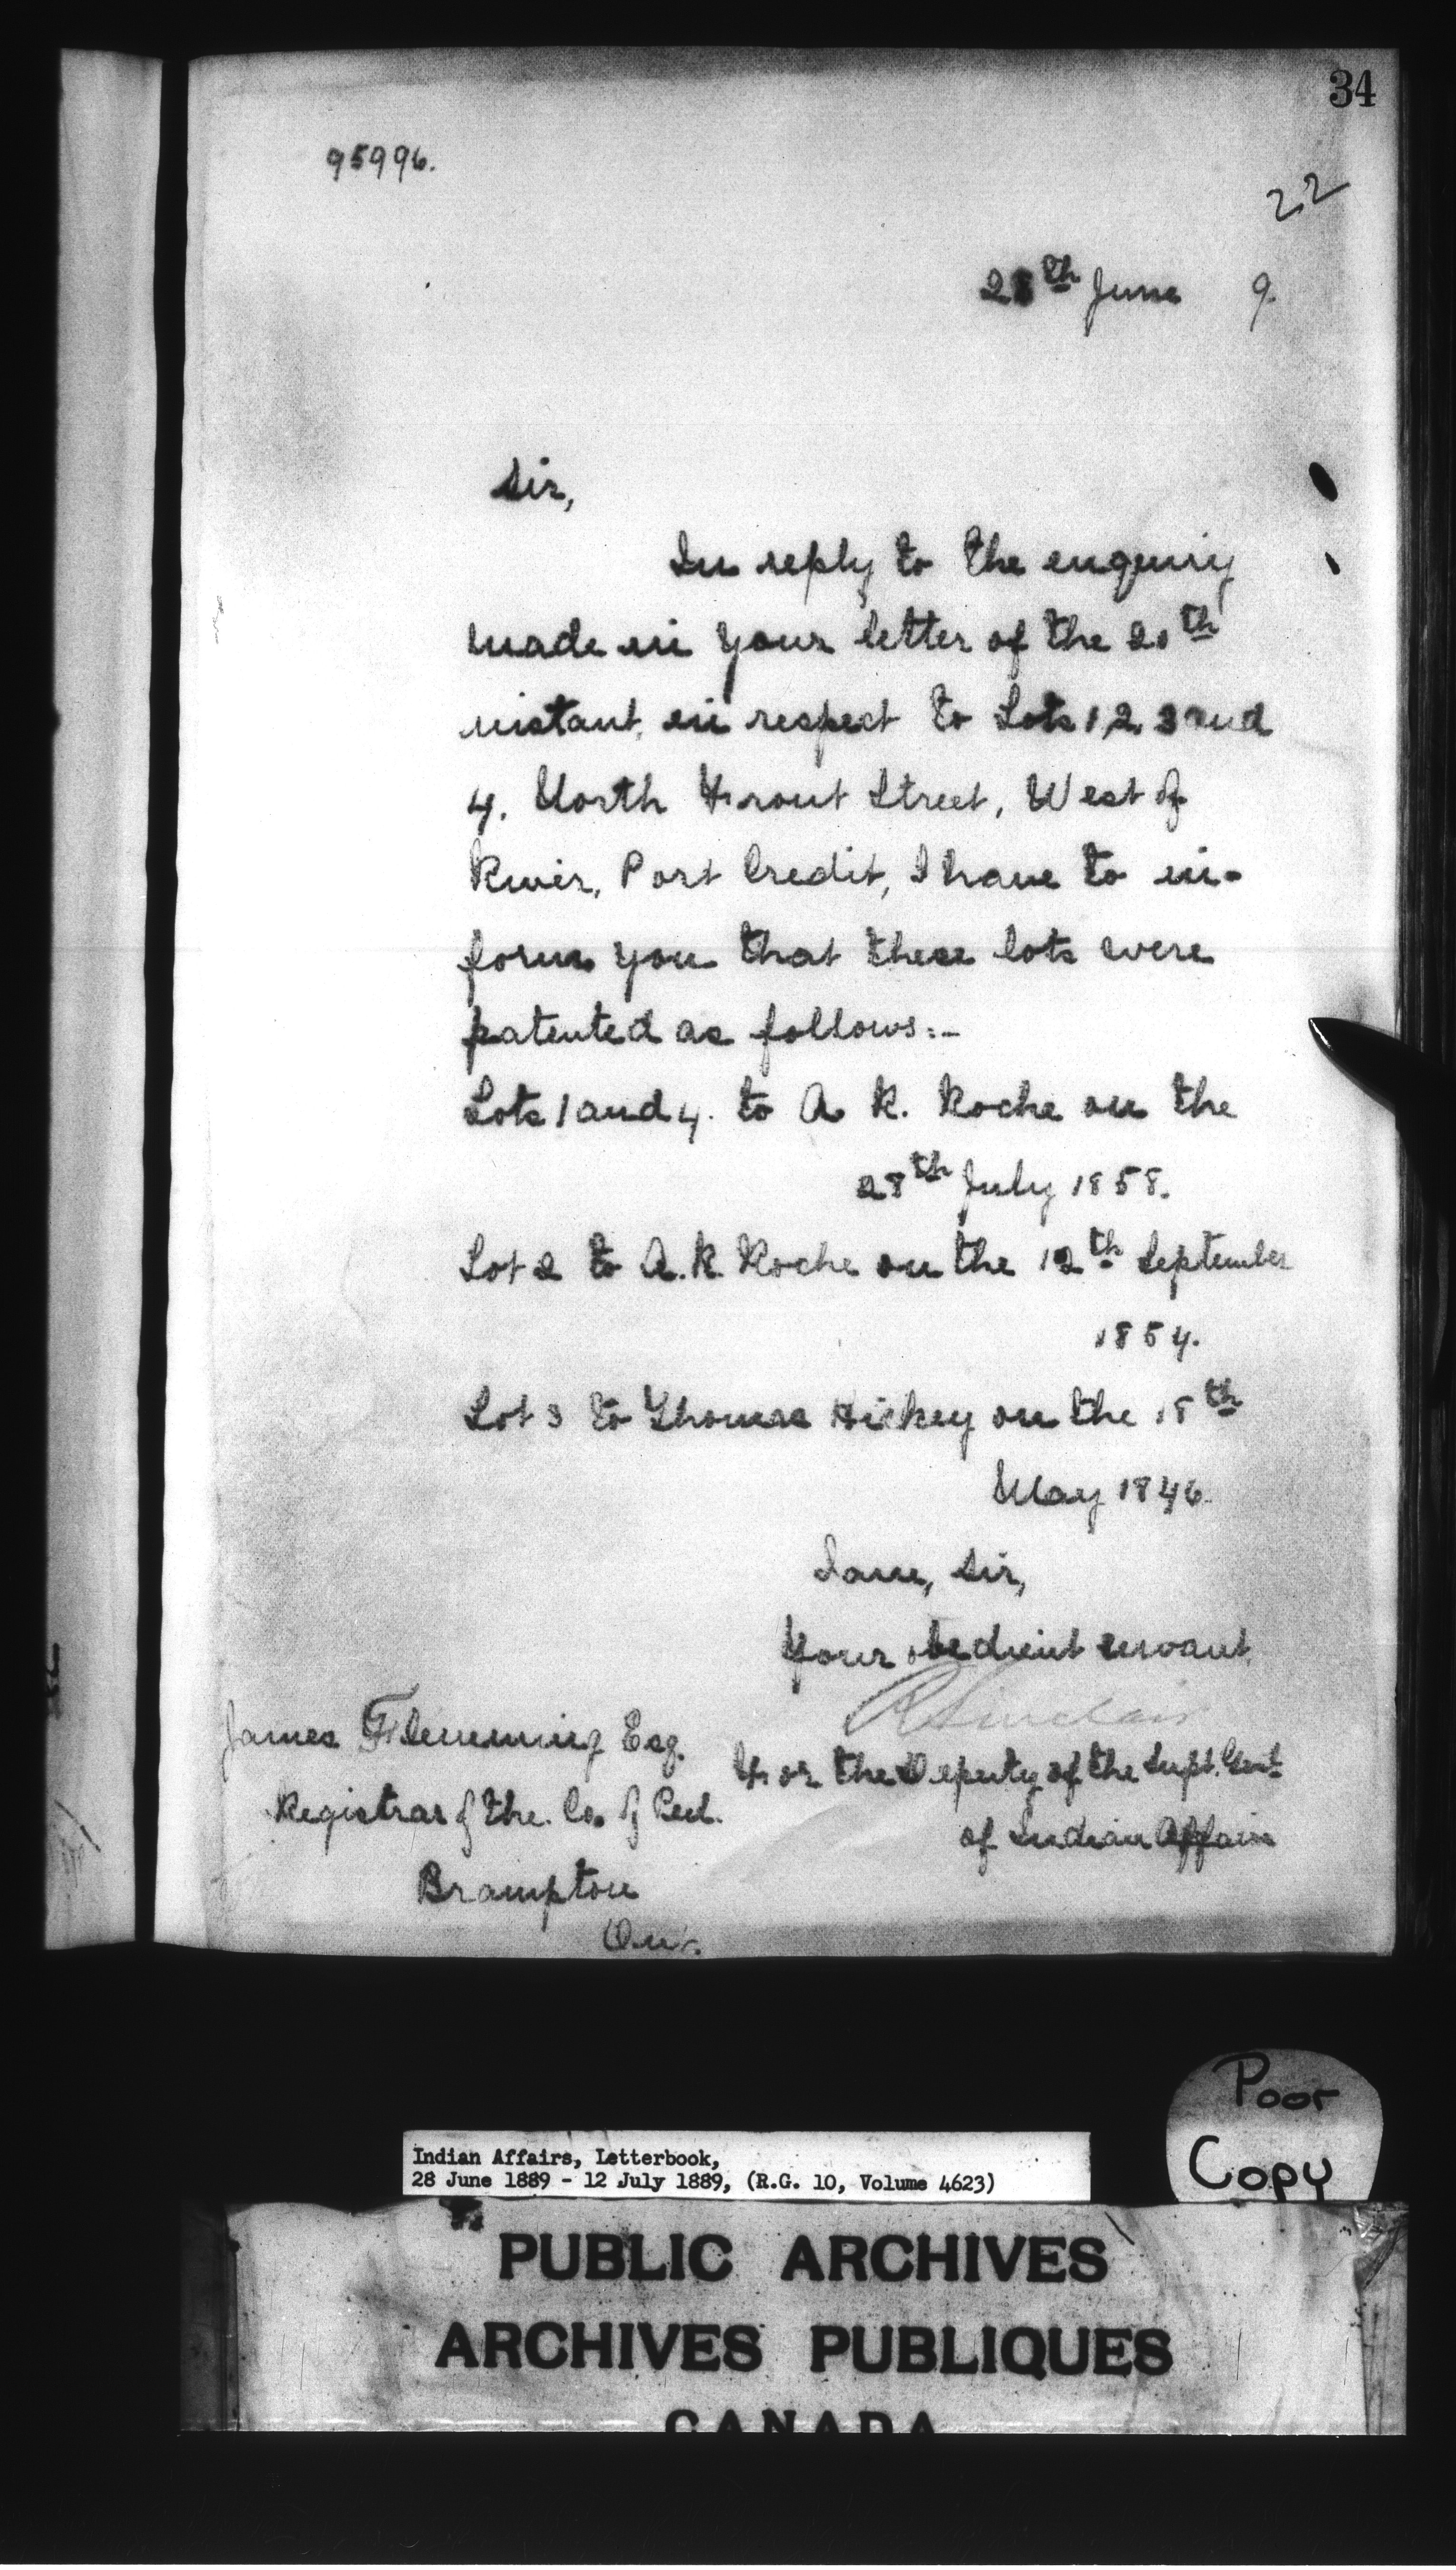 34
95996.
22
28th June 9.
Sir,
In reply to the enquiry
made in your letter of the 20th
instant, in respect to Lots 1, 2, 3 and
4, North Front Street, West of
River, Port Credit, I have to in-
form you that these lots were
patented as follows:-
Lots 1 and 4. to A. R. Roche on the
28th July 1858.
Lot 2 to A. R. Roche on the 12th September
1854.
Lot 3 to Thomas Hickey on the 18th
May 1846.
I am, Sir,
Your obedient servant,
R Sinclair
For the Deputy of the Supt. Genl
of Indian Affairs
James Flemming Esq.
Registrar of the Co. of Peel.
Brampton
Ont.
Poor
Copy
Indian Affairs, Letterbook,
28 June 1889 - 12 July 1889, (R.G. 10, Volume 4623)
PUBLIC ARCHIVES
ARCHIVES PUBLIQUES
CANADA